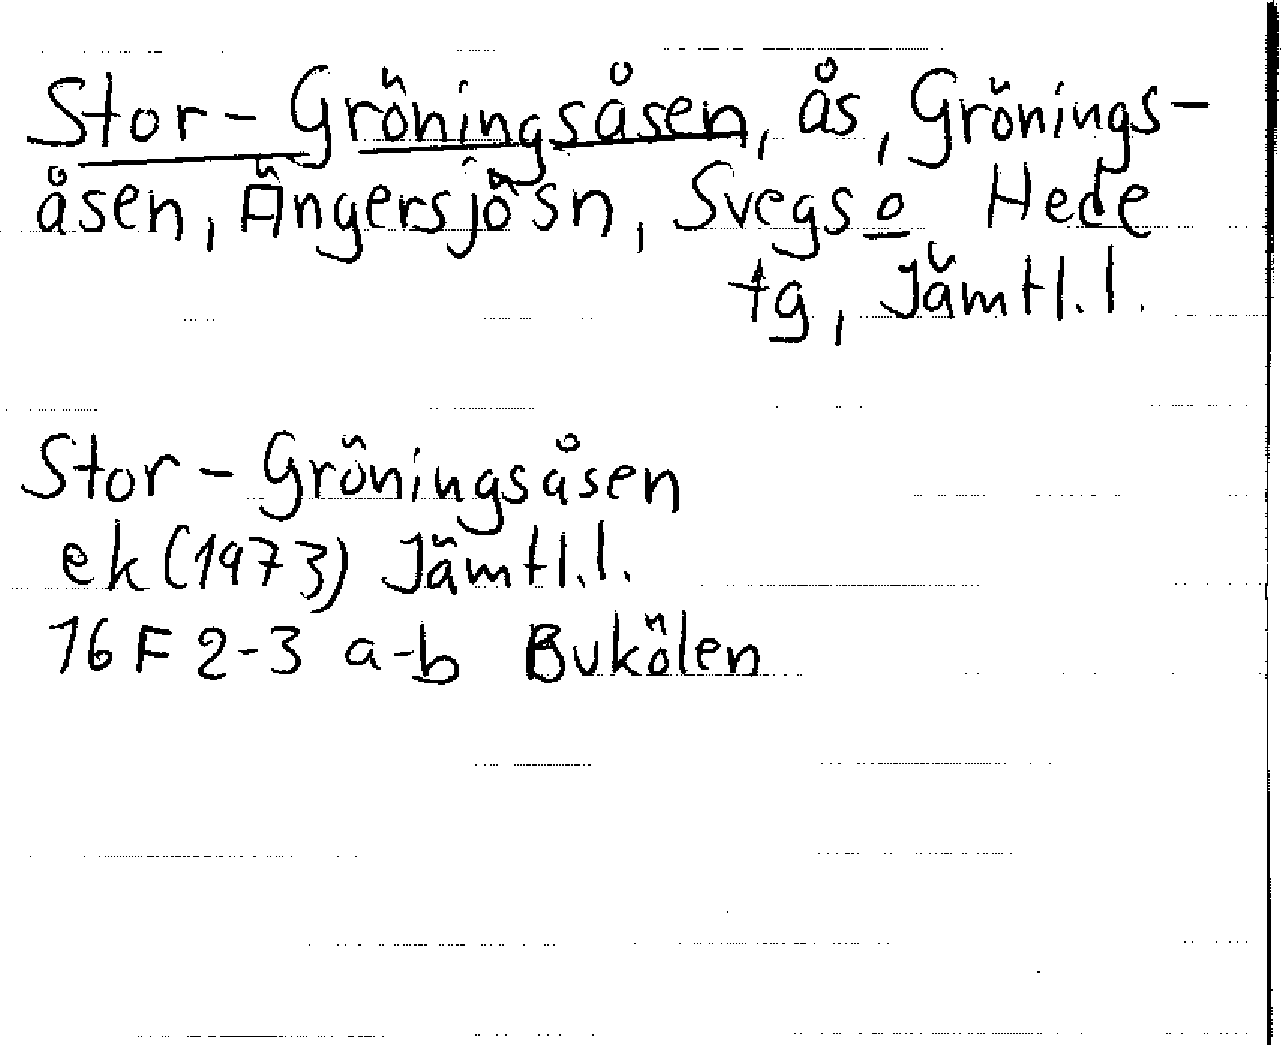 Stor-Gröningsåsen, ås, Grönings-
åsen, Ängersjö sn, Svegs o Hede
tg, Jämtl. l.
Stor-Gröningsåsen
ek (1973) Jämtl. l.
16 F 2-3 a-b Bukölen